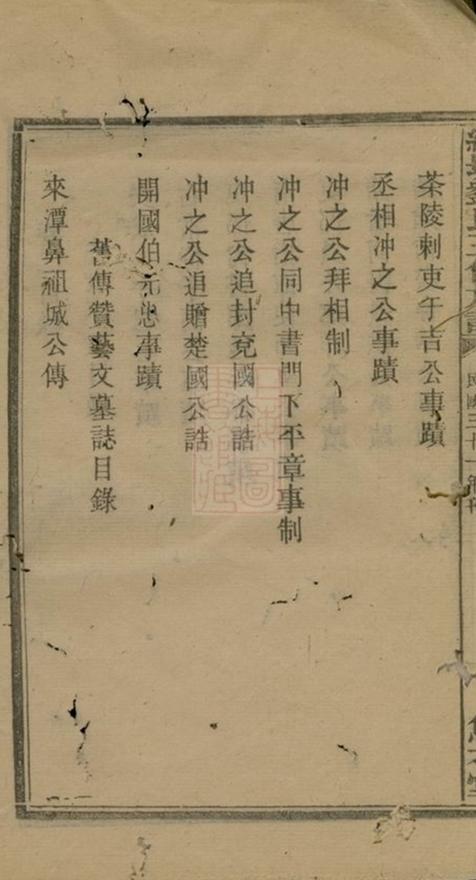 茶陵刺吏子吉公事蹟
丞相冲之公事蹟
冲之公拜相制
冲之公同中書門下平章事制
冲之公追封兗國公誥
冲之公追贈楚國公誥
開國伯元忠事蹟
舊傳贊藝文墓誌目錄
來潭鼻祖城公傳